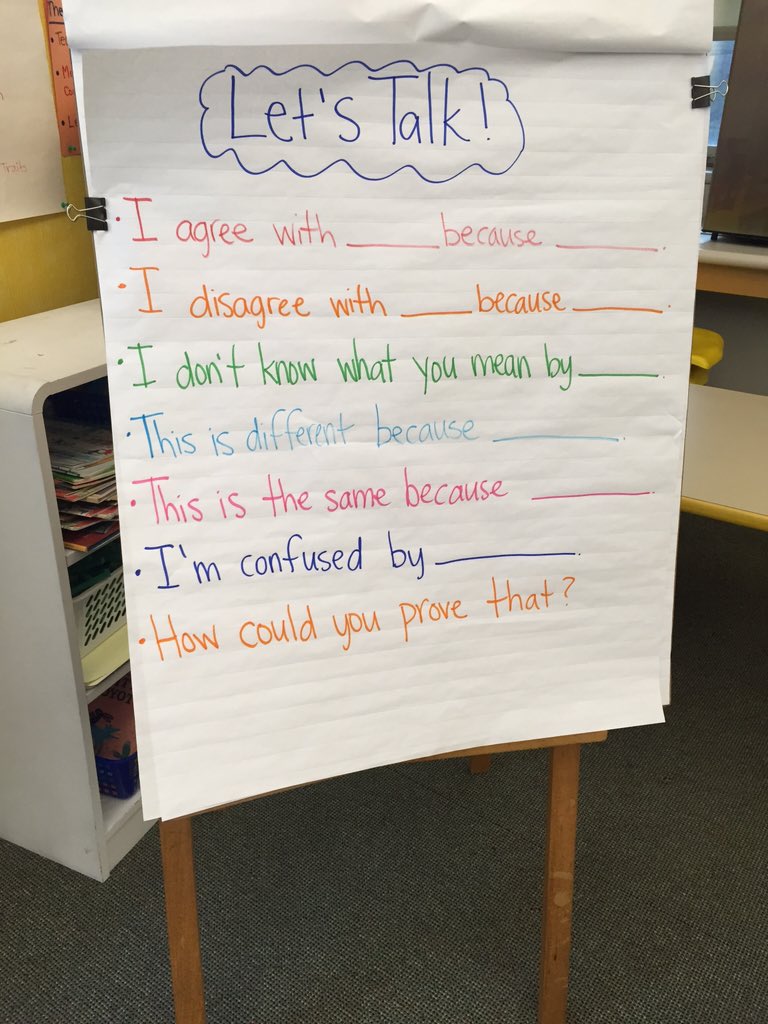 Let's Talk!
• I agree with ____ because ____.
• I disagree with ____ because ____.
• I don't know what you mean by ____.
• This is different because ____.
• This is the same because ____.
• I'm confused by ____.
• How could you prove that?
Traits